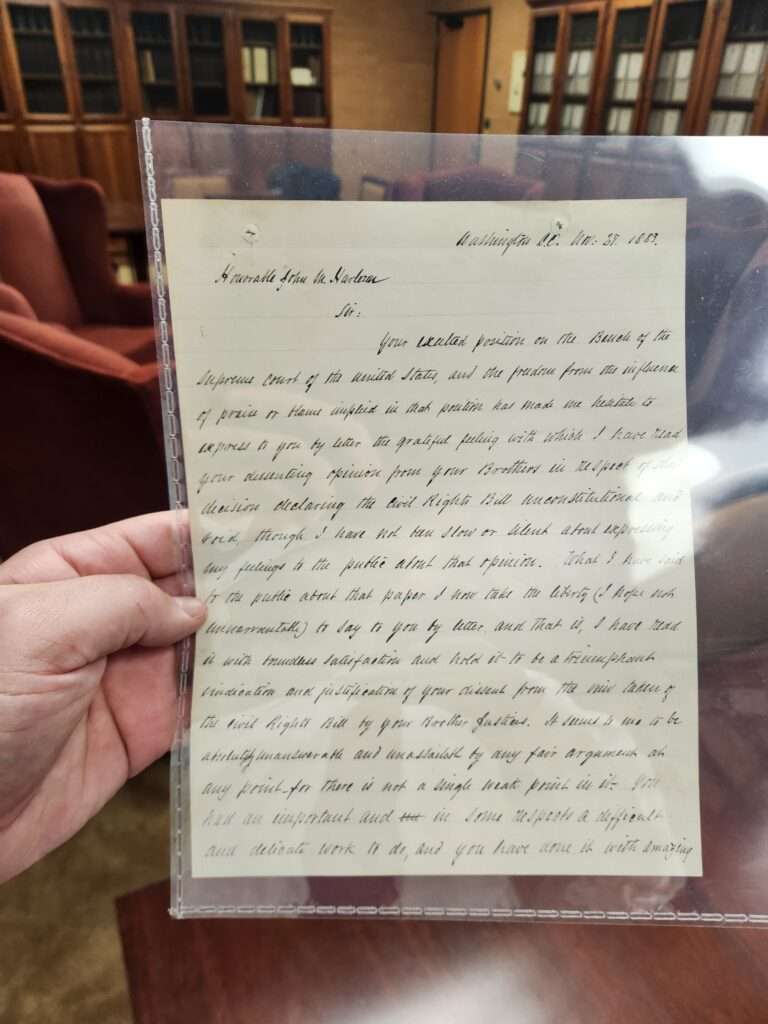 Washington D.C. Nov: 27. 1883.
Honorable John M. Harlem
Sir:
Your exalted position on the Bench of the
Supreme Court of the United States, and the freedom from the influence
of praise or blame implied in that position has made me hesitate to
express to you by letter the grateful feeling with which I have read
your dissenting opinion from your Brothers in respect of the
decision declaring the Civil Rights Bill unconstitutional and
void, though I have not been slow or silent about expressing
my feelings to the public about that opinion. What I have said
to the public about that paper I now take the liberty (I hope not
unwarrantable) to say to you by letter and that is, I have read
it with boundless satisfaction and hold it to be a triumphant
vindication and justification of your dissent from the view taken of
the Civil Rights Bill by your Brother Justices. It seems to me to be
absolutely unanswerable and unassailable by any fair argument at
any point for there is not a single weak point in it. You
had an important and in some respects a difficult
and delicate work to do, and you have done it with amazing